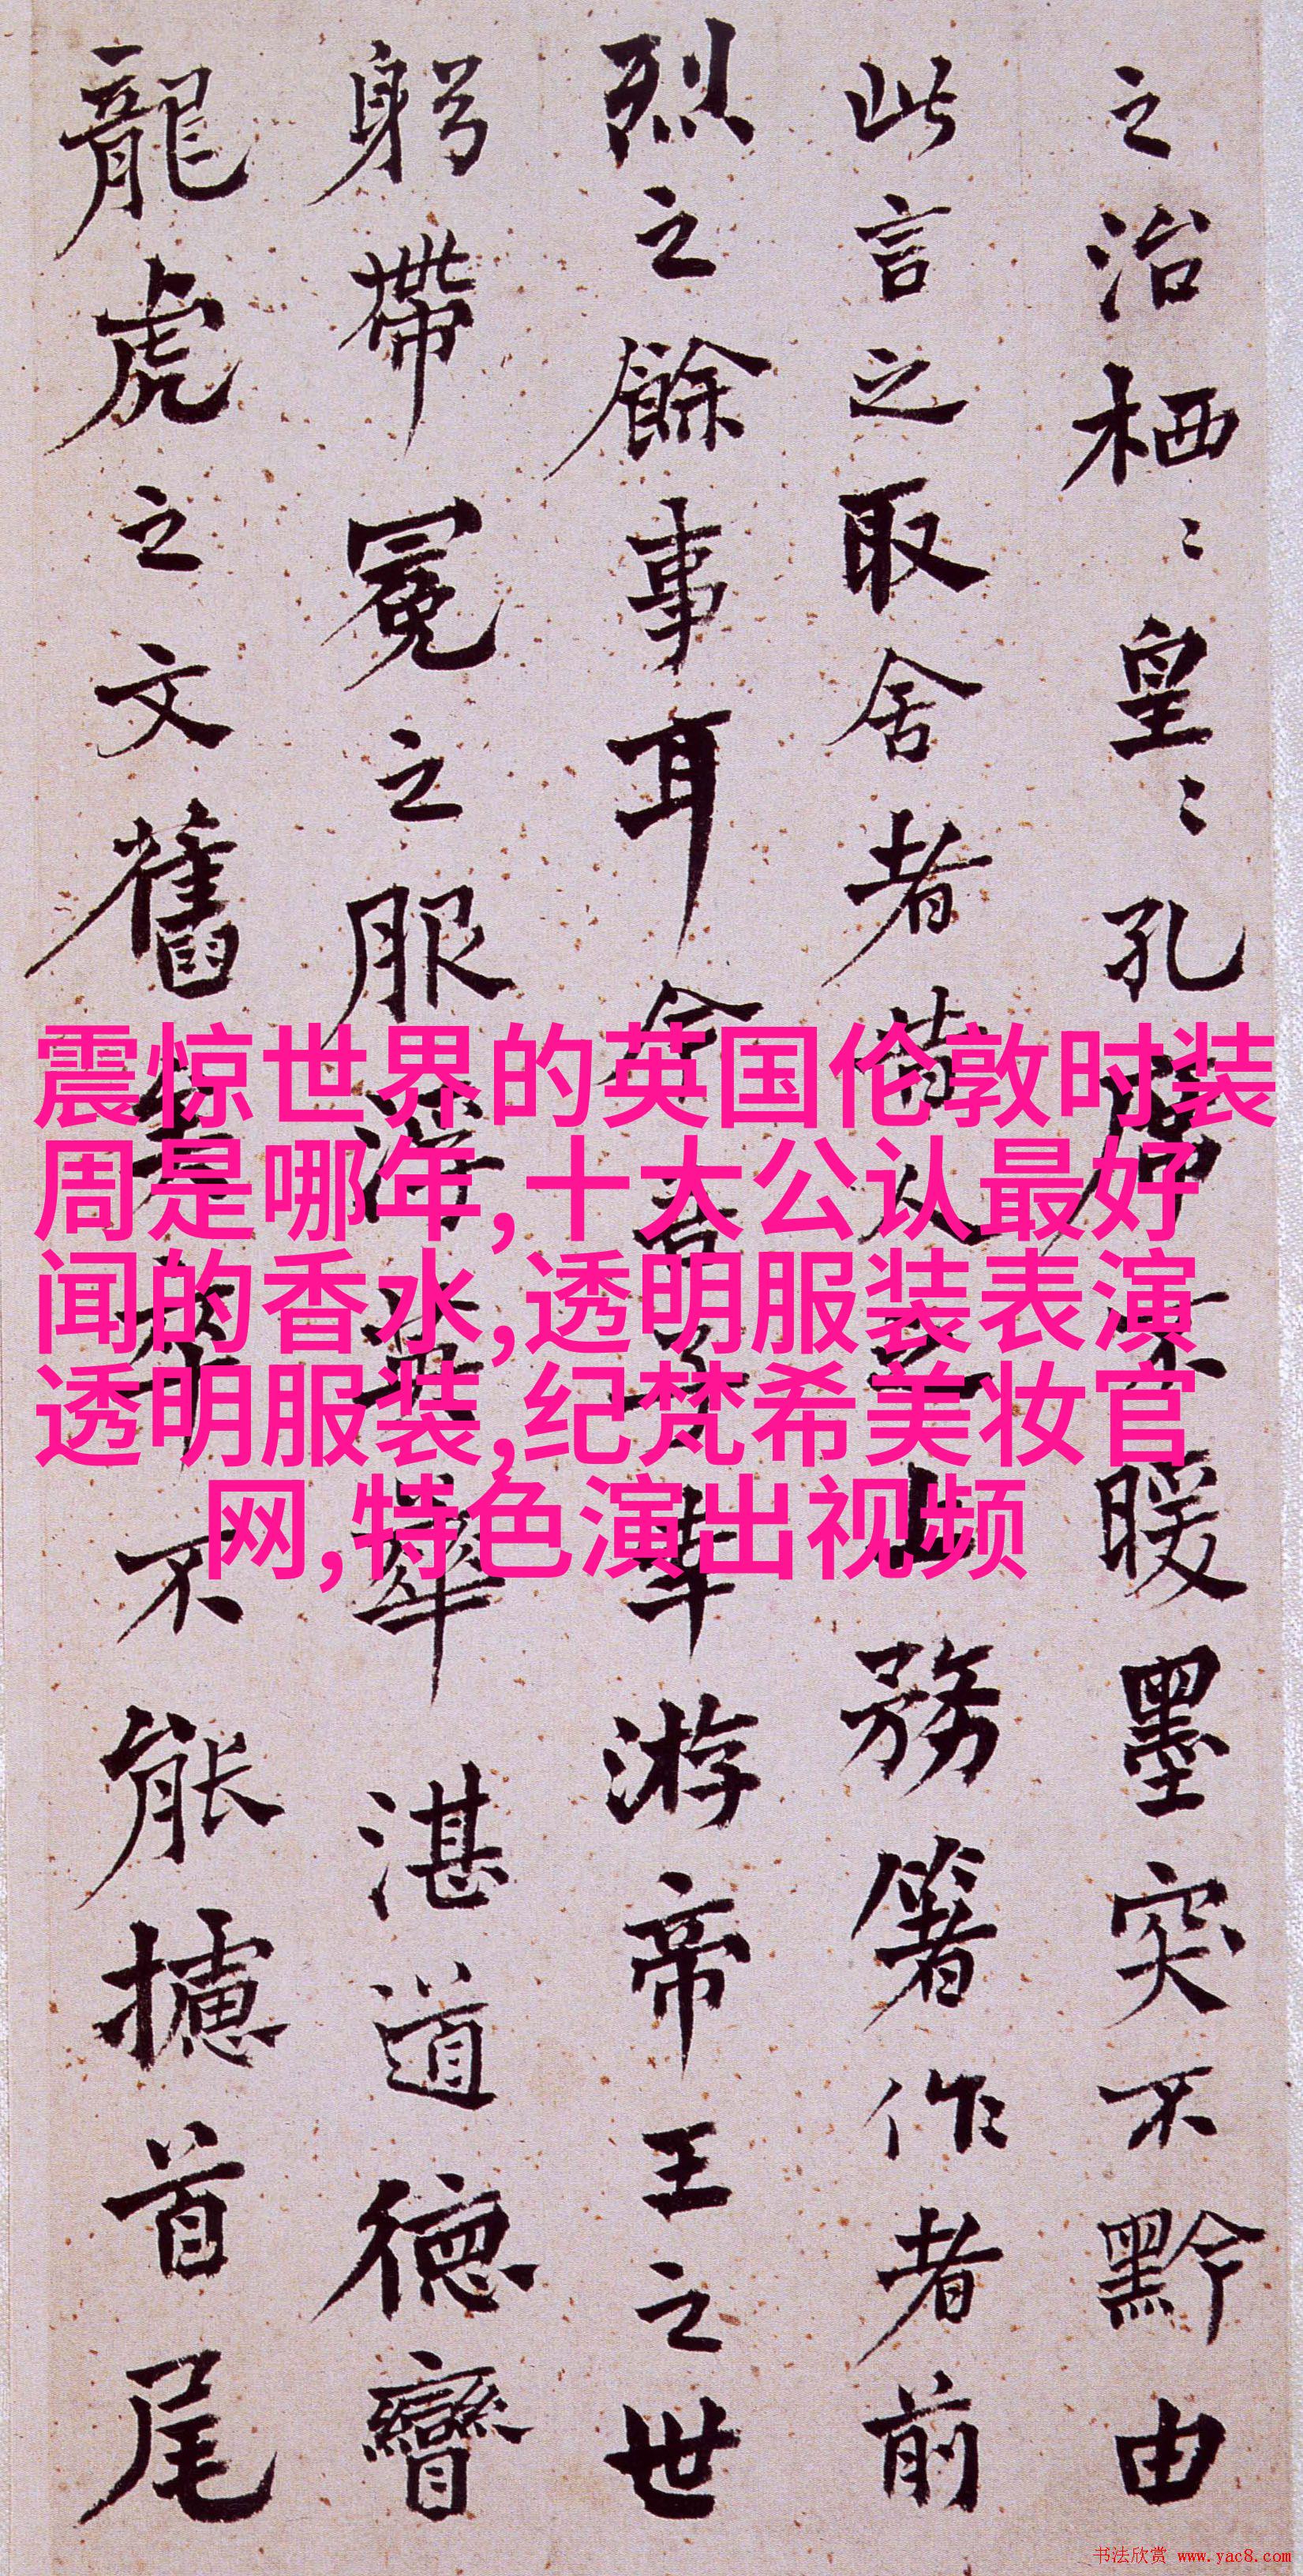 之治栖〻皇〻孔席不暖墨突不黔由
此言之取舍者昔人之上務箸作者前
烈之餘事耳今吾子幸游帝王之世
躬帶冕之服浮英華湛道德矕
龍虎之文舊矣卒不能攄首尾
震惊世界的英国伦敦时装
周是哪年,十大公认最好
闻的香水,透明服装表演
透明服装,纪梵希美妆官
网,特色演出视频
书法欣赏 www.yac8.com